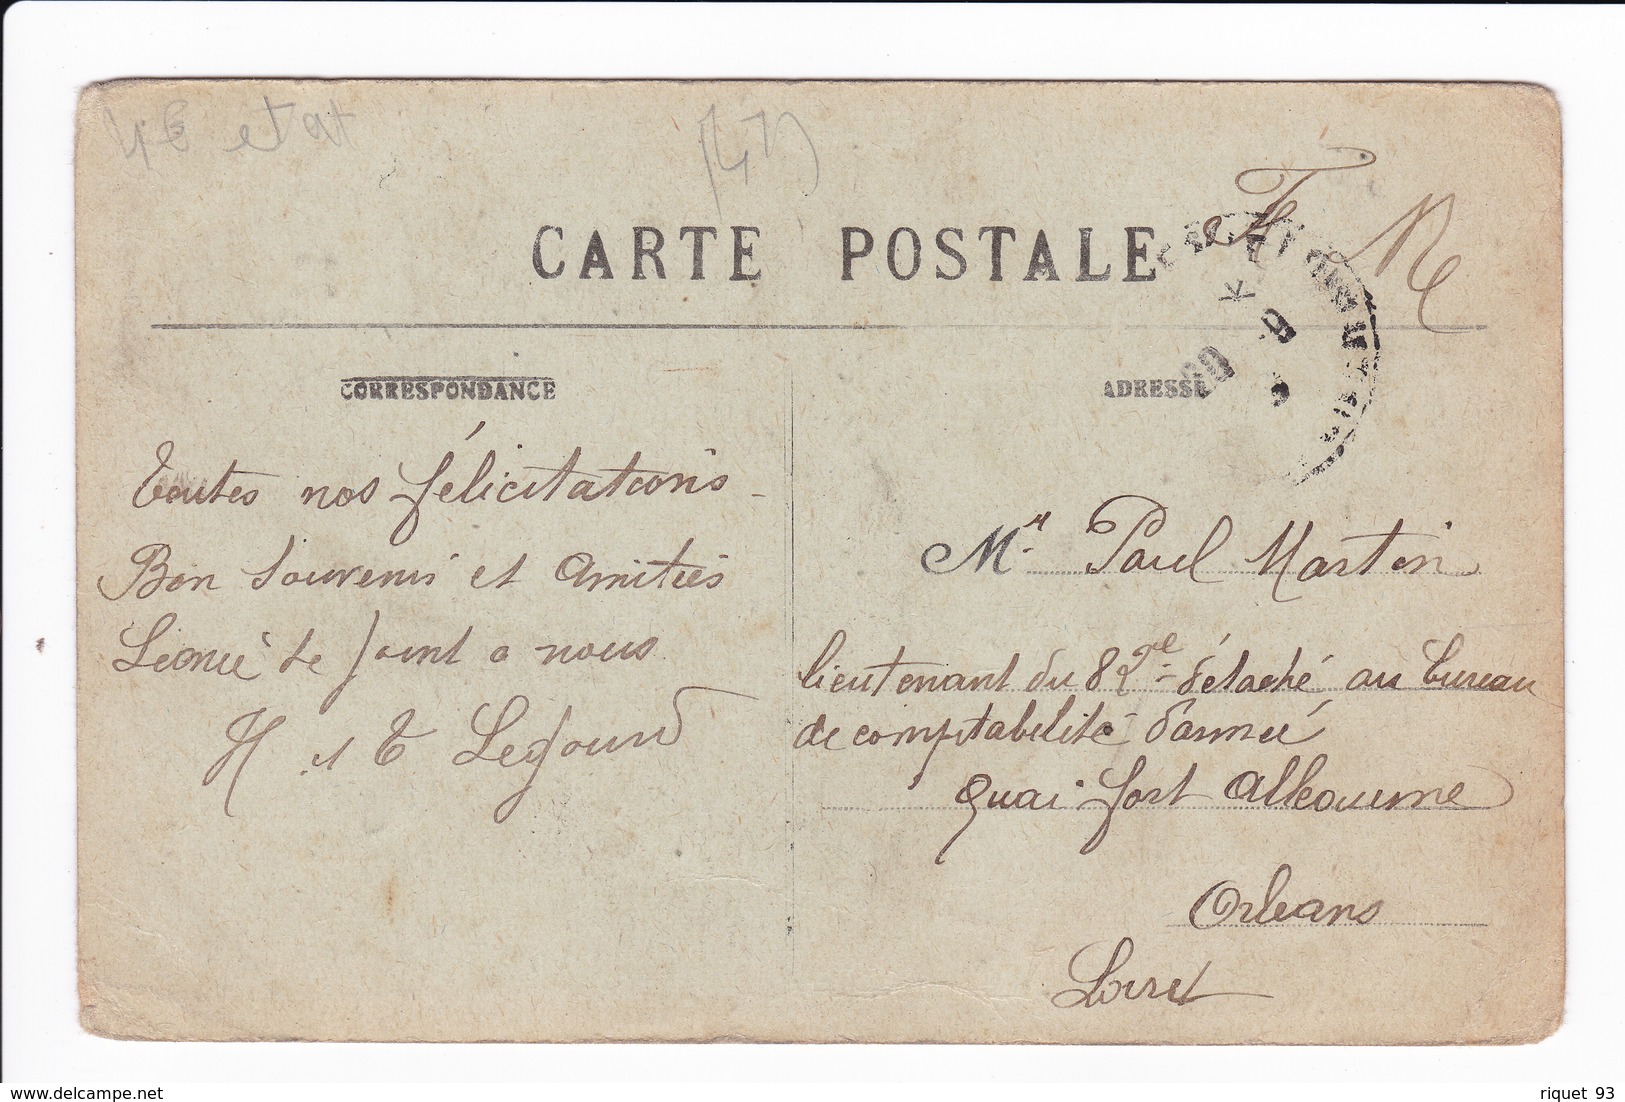 4€ etat
(41)
F M
CARTE POSTALE
CORRESPONDANCE
ADRESSE
Toutes nos félicitations
Bon Souvenir et Amitiés
Léonie se joint a nous
H et E Legourd
Mr Paul Martin
lieutenant du 82e détaché au bureau
de comptabilité d'armée
quai fort Alleaume
Orleans
Loiret
riquet 93